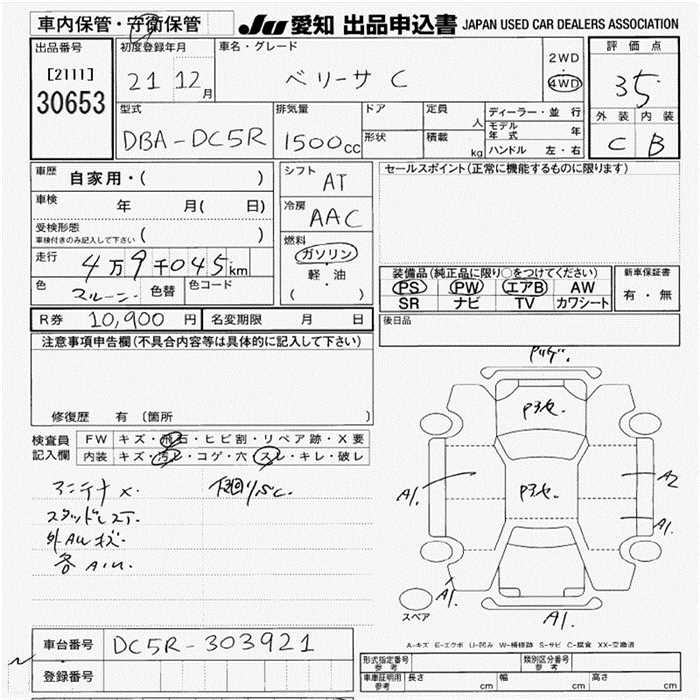 車内保管・守衛保管
JU 愛知 出品申込書 JAPAN USED CAR DEALERS ASSOCIATION
出品番号
[2111]
30653
初度登録年月
21 12月
車名・グレード
ベリーサ C
2WD
・
4WD
評価点
3.5
外装 内装
C B
型式
DBA-DC5R
排気量
1500cc
ドア
形状
定員
人
積載
kg
ディーラー・並行
モデル年式 年
ハンドル 左・右
車歴 自家用・( )
車検 年 月( 日)
受検形態
車検付きのみ記入して下さい ( )
走行 4万9千045km
色 マルーン 色替 色コード
シフト
AT
冷房
AAC
燃料
ガソリン
・
軽・油
( )
セールスポイント(正常に機能するものに限ります)
装備品(純正品に限り○をつけてください)
PS PW エアB AW
SR ナビ TV カワシート
新車保証書
有・無
R券 10,900 円 名変期限 月 日
後日品
注意事項申告欄(不具合内容等は具体的に記入して下さい)
修復歴 有 〔箇所 〕
検査員記入欄
FW キズ・飛石・ヒビ割・リペア跡・X要
内装 キズ・汚レ・コゲ・穴・スレ・キレ・破レ
アンテナ X.
スタッドレスT.
外AWキズ.
各A1U.
P3セ.
P3セ.
A1.
A2
A1.
A1.
A1.
スペア
A-キズ E-エクボ U-凹み W-補修跡 S-サビ C-腐食 XX-交換済
車台番号 DC5R-303921
登録番号
形式指定番号 参考
類別区分番号 参考
車庫証明用 参考 長さ cm 幅 cm 高さ cm